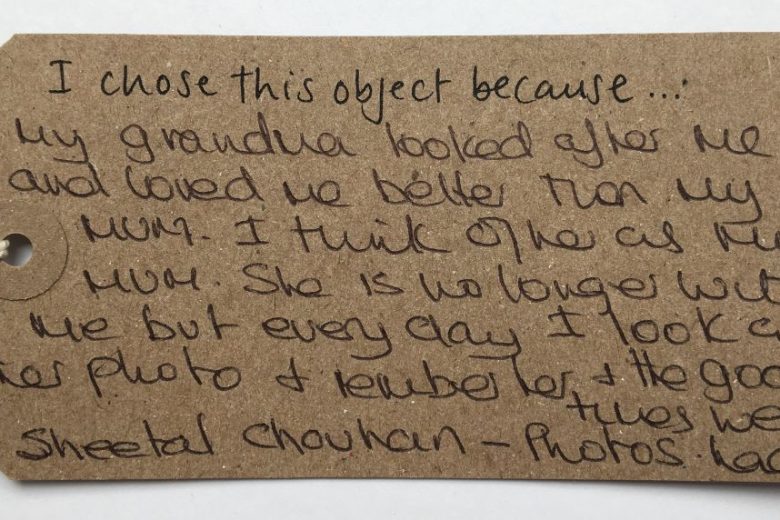 I chose this object because....
My grandma looked after me
and loved me better than my
MUM. I think of her as my
MUM. She is no longer with
me but every day I look a
her photo & rember her & the goo
times we
Sheetal Chouhan - Photos. had